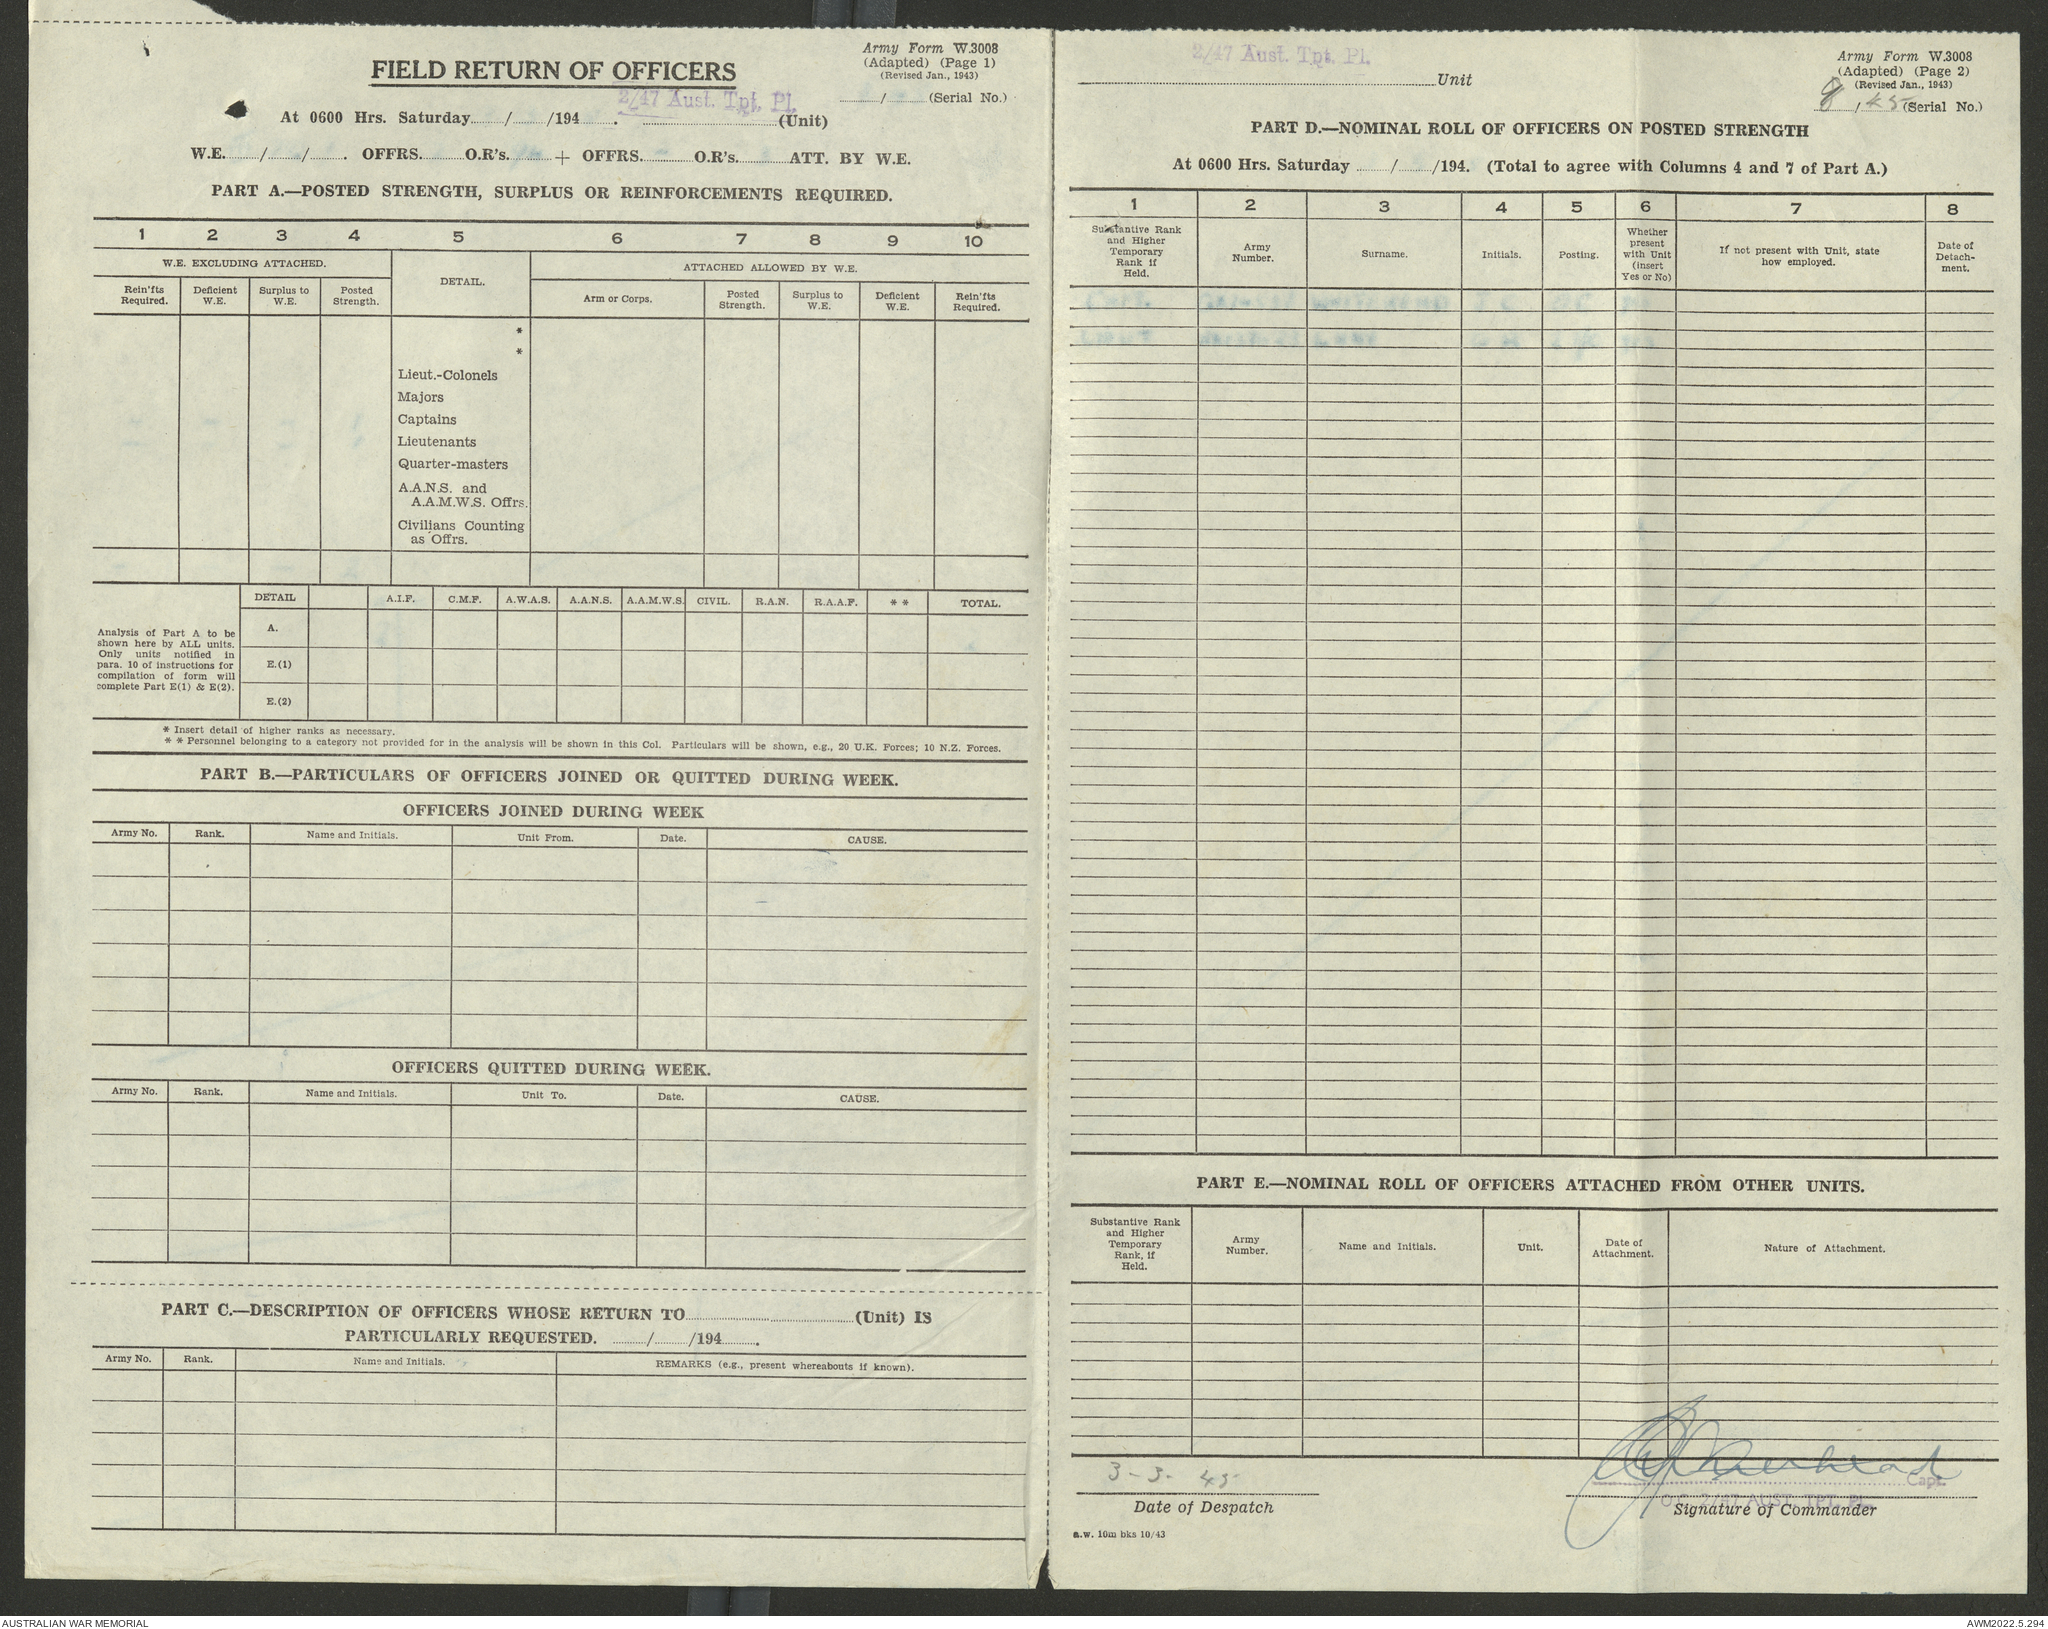 FIELD RETURN OF OFFICERS
Army Form W.3008
(Adapted) (Page 1)
(Revised Jan., 1943)
........../.......... (Serial No.)
2/47 Aust. Tpt. Pl.
At 0600 Hrs. Saturday ....../....../194...... . ............(Unit)
W.E. ....../....../...... . OFFRS. ...... O.R's. ...... + OFFRS. ...... O.R's. ...... ATT. BY W.E.
PART A.—POSTED STRENGTH, SURPLUS OR REINFORCEMENTS REQUIRED.
1 2 3 4 5 6 7 8 9 10
W.E. EXCLUDING ATTACHED.
DETAIL.
ATTACHED ALLOWED BY W.E.
Rein'fts Required.
Deficient W.E.
Surplus to W.E.
Posted Strength.
Arm or Corps.
Posted Strength.
Surplus to W.E.
Deficient W.E.
Rein'fts Required.
*
*
Lieut.-Colonels
Majors
Captains
Lieutenants
Quarter-masters
A.A.N.S. and
A.A.M.W.S. Offrs.
Civilians Counting
as Offrs.
DETAIL A.I.F. C.M.F. A.W.A.S. A.A.N.S. A.A.M.W.S. CIVIL. R.A.N. R.A.A.F. * * TOTAL.
Analysis of Part A to be
shown here by ALL units.
Only units notified in
para. 10 of instructions for
compilation of form will
complete Part E(1) & E(2).
A.
E.(1)
E.(2)
* Insert detail of higher ranks as necessary.
* * Personnel belonging to a category not provided for in the analysis will be shown in this Col. Particulars will be shown, e.g., 20 U.K. Forces; 10 N.Z. Forces.
PART B.—PARTICULARS OF OFFICERS JOINED OR QUITTED DURING WEEK.
OFFICERS JOINED DURING WEEK
Army No. Rank. Name and Initials. Unit From. Date. CAUSE.
OFFICERS QUITTED DURING WEEK.
Army No. Rank. Name and Initials. Unit To. Date. CAUSE.
PART C.—DESCRIPTION OF OFFICERS WHOSE RETURN TO............(Unit) IS
PARTICULARLY REQUESTED. ....../....../194...... .
Army No. Rank. Name and Initials. REMARKS (e.g., present whereabouts if known).
2/47 Aust. Tpt. Pl.
............Unit
Army Form W.3008
(Adapted) (Page 2)
(Revised Jan., 1943)
8 / 45 (Serial No.)
PART D.—NOMINAL ROLL OF OFFICERS ON POSTED STRENGTH
At 0600 Hrs. Saturday ....../....../194. (Total to agree with Columns 4 and 7 of Part A.)
1 2 3 4 5 6 7 8
Substantive Rank
and Higher
Temporary
Rank if
Held.
Army
Number.
Surname.
Initials.
Posting.
Whether
present
with Unit
(insert
Yes or No)
If not present with Unit, state
how employed.
Date of
Detach-
ment.
PART E.—NOMINAL ROLL OF OFFICERS ATTACHED FROM OTHER UNITS.
Substantive Rank
and Higher
Temporary
Rank, if
Held.
Army
Number.
Name and Initials.
Unit.
Date of
Attachment.
Nature of Attachment.
3-3-45
Date of Despatch
Capt.
O.C. 2/47 AUST. TPT. PL.
Signature of Commander
a.w. 10m bks 10/43
AUSTRALIAN WAR MEMORIAL
AWM2022.5.294